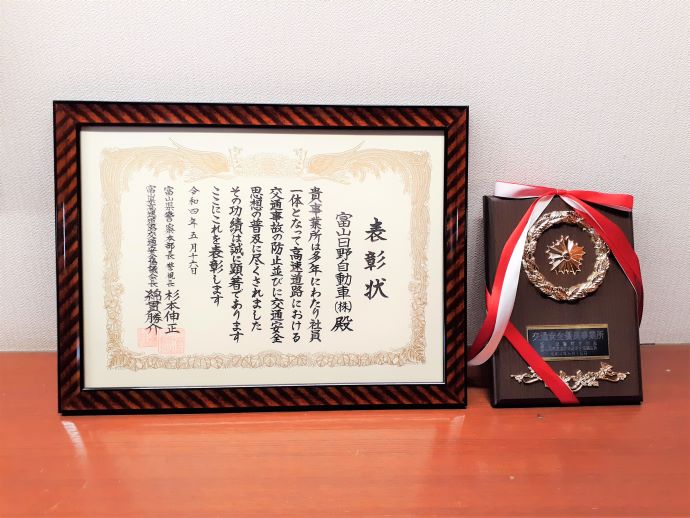 表彰状
富山日野自動車㈱殿
貴事業所は多年にわたり社員
一体となって高速道路における
交通事故の防止並びに交通安全
思想の普及に尽くされました
その功績は誠に顕著であります
ここにこれを表彰します
令和四年五月十六日
富山県警察本部長 警視長 杉本伸正
富山県高速道路交通安全協議会長 綿貫勝介
交通安全優良事業所